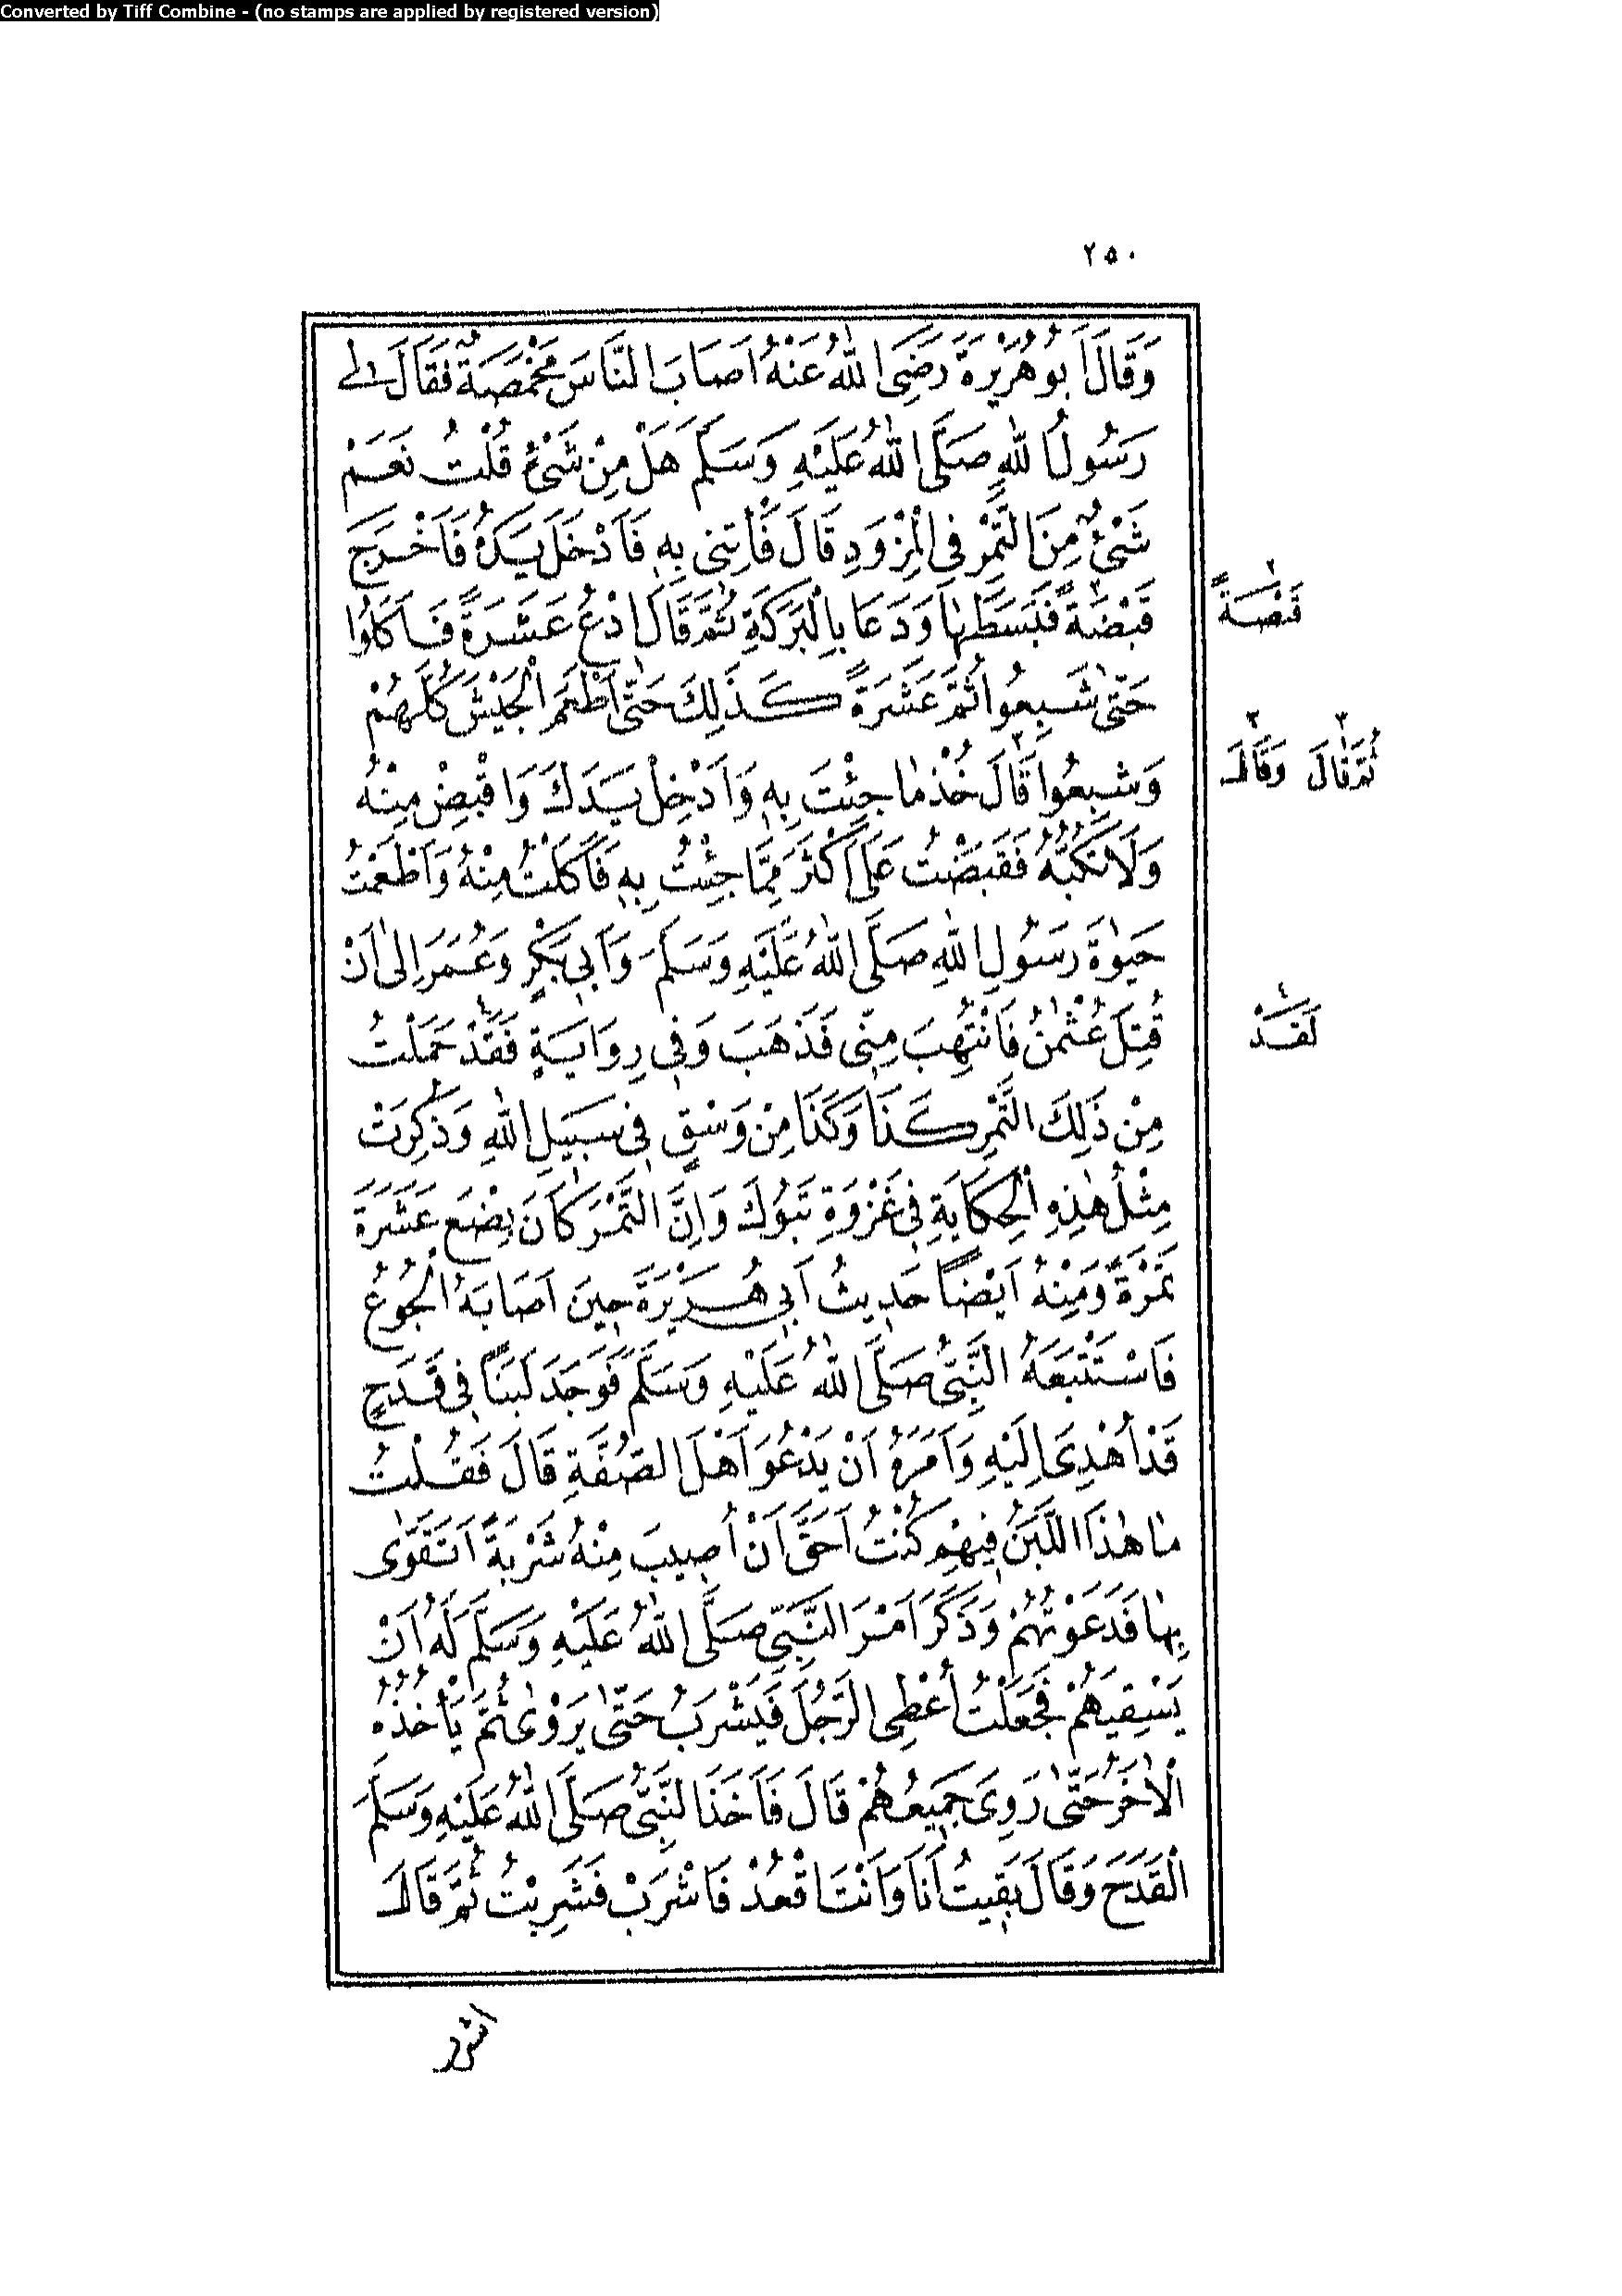 Converted by Tiff Combine - (no stamps are applied by registered version)
٢٥٠
وَقَالَ اَبُو هُرَيْرَةَ رَضِىَ اللّٰهُ عَنْهُ اَصَابَ النَّاسَ مَخْمَصَةٌ فَقَالَ لِى
رَسُولُ اللّٰهِ صَلَّى اللّٰهُ عَلَيْهِ وَسَلَّمَ هَلْ مِنْ شَىْءٍ قُلْتُ نَعَمْ
شَىْءٌ مِنَ التَّمْرِ فِى الْمِزْوَدِ قَالَ فَأْتِنِى بِهِ فَاَدْخَلَ يَدَهُ فَاَخْرَجَ
قَبْضَةً فَبَسَطَهَا وَدَعَا بِالْبَرَكَةِ ثُمَّ قَالَ ادْعُ عَشَرَةً فَاَكَلُوا
حَتّٰى شَبِعُوا ثُمَّ عَشَرَةً كَذٰلِكَ حَتّٰى اَطْعَمَ الْجَيْشَ كُلَّهُمْ
وَشَبِعُوا قَالَ خُذْ مَا جِئْتَ بِهِ وَاَدْخِلْ يَدَكَ وَاقْبِضْ مِنْهُ
وَلَا تَكُبَّهُ فَقَبَضْتُ عَلَى اَكْثَرَ مِمَّا جِئْتُ بِهِ فَاَكَلْتُ مِنْهُ وَاَطْعَمْتُ
حَيٰوةَ رَسُولِ اللّٰهِ صَلَّى اللّٰهُ عَلَيْهِ وَسَلَّمَ وَاَبِى بَكْرٍ وَعُمَرَ اِلٰى اَنْ
قُتِلَ عُثْمٰنُ فَانْتُهِبَ مِنِّى فَذَهَبَ وَفِى رِوَايَةٍ فَقَدْ حَمَلْتُ
مِنْ ذٰلِكَ التَّمْرِ كَذَا وَكَذَا مِنْ وَسْقٍ فِى سَبِيلِ اللّٰهِ وَذُكِرَتْ
مِثْلُ هٰذِهِ الْحِكَايَةِ فِى غَزْوَةِ تَبُوكَ وَاِنَّ التَّمْرَ كَانَ بِضْعَ عَشَرَةَ
تَمْرَةً وَمِنْهُ اَيْضًا حَدِيثُ اَبِى هُرَيْرَةَ حِينَ اَصَابَهُ الْجُوعُ
فَاسْتَتْبَعَهُ النَّبِىُّ صَلَّى اللّٰهُ عَلَيْهِ وَسَلَّمَ فَوَجَدَ لَبَنًا فِى قَدَحٍ
قَدْ اُهْدِىَ اِلَيْهِ وَاَمَرَهُ اَنْ يَدْعُوَ اَهْلَ الصُّفَّةِ قَالَ فَقُلْتُ
مَا هٰذَا اللَّبَنُ فِيهِمْ كُنْتُ اَحَقَّ اَنْ اُصِيبَ مِنْهُ شَرْبَةً اَتَقَوّٰى
بِهَا فَدَعَوْتُهُمْ وَذَكَرَ اَمْرَ النَّبِىِّ صَلَّى اللّٰهُ عَلَيْهِ وَسَلَّمَ لَهُ اَنْ
يَسْقِيَهُمْ فَجَعَلْتُ اُعْطِى الرَّجُلَ فَيَشْرَبُ حَتّٰى يَرْوٰى ثُمَّ يَأْخُذُهُ
الْاٰخَرُ حَتّٰى رَوِىَ جَمِيعُهُمْ قَالَ فَاَخَذَ النَّبِىُّ صَلَّى اللّٰهُ عَلَيْهِ وَسَلَّمَ
الْقَدَحَ وَقَالَ بَقِيتُ اَنَا وَاَنْتَ اقْعُدْ فَاشْرَبْ فَشَرِبْتُ ثُمَّ قَالَ
٢
قَبْصَةً
٣ ٣
ثُمَّ قَالَ وَقَالَ
٤
لَقَدْ
اشرب